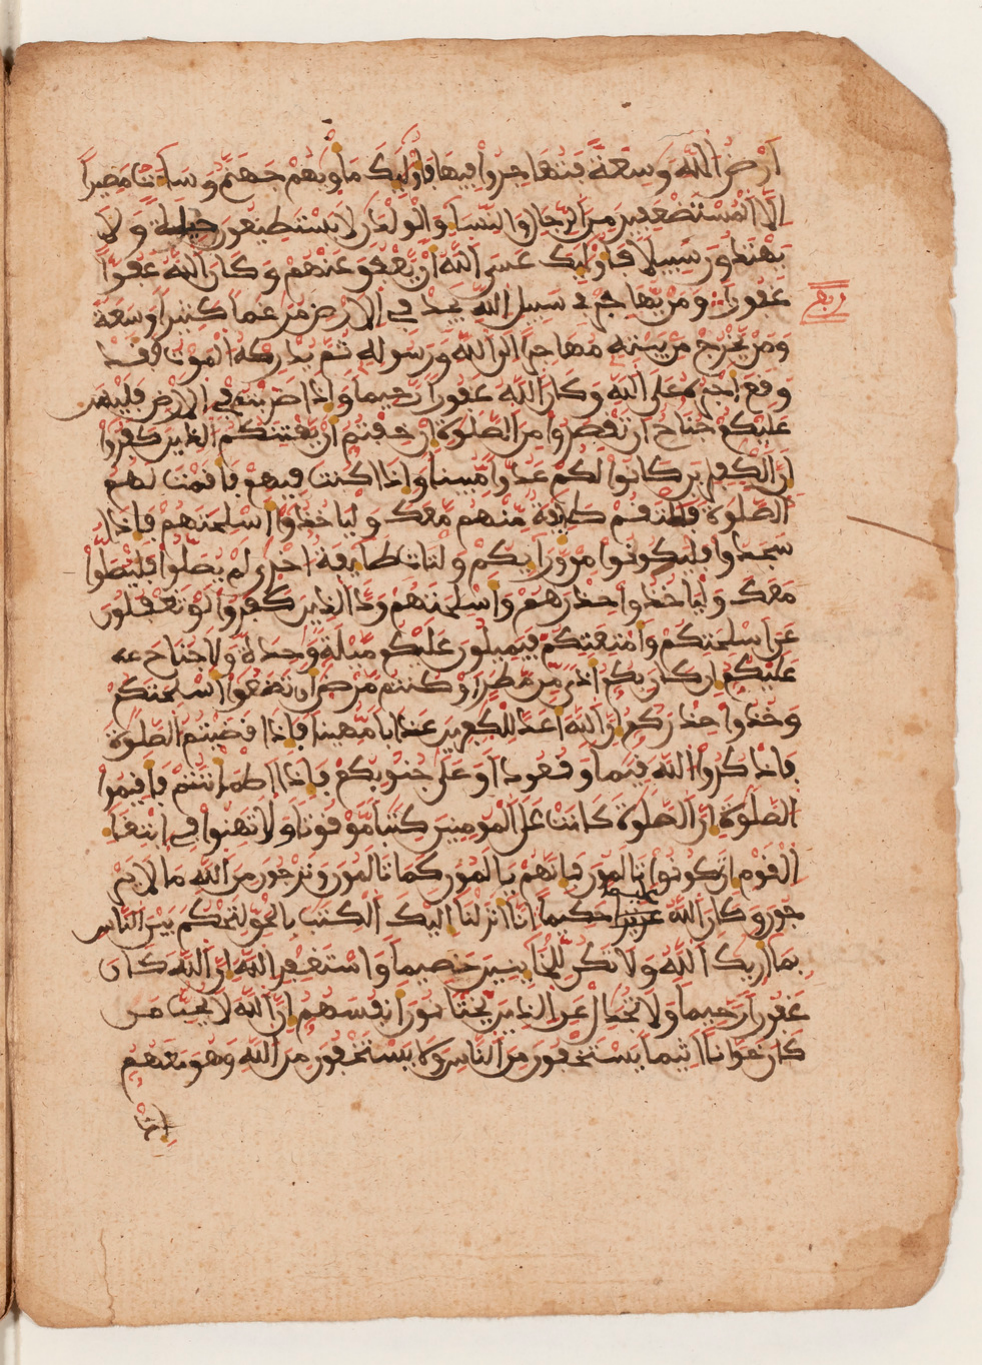 أرض الله وسعة فتهاجروا فيها فأوليك مأويهم جهنم وساءت مصيرا
إلا المستضعفين من الرجال والنساء والولدن لا يستطيعون حيلة ولا
يهتدون سبيلا فأوليك عسى الله أن يعفو عنهم وكان الله عفوا
غفورا ومن يهاجر في سبيل الله يجد في الارض مرغما كثيرا وسعة
ومن يخرج من بيته مهاجرا الى الله ورسوله ثم يدركه الموت فقد
وقع أجره على الله وكان الله غفورا رحيما وإذا ضربتم في الارض فليس
عليكم جناح أن تقصروا من الصلوة إن خفتم أن يفتنكم الذين كفروا
إن الكفرين كانوا لكم عدوا مبينا وإذا كنت فيهم فأقمت لهم
الصلوة فلتقم طايفة منهم معك وليأخذوا أسلحتهم فإذا
سجدوا فليكونوا من ورايكم ولتات طايفة اخرى لم يصلوا فليصلوا
معك وليأخذوا حذرهم وأسلحتهم ود الذين كفروا لو تغفلون
عن أسلحتكم وأمتعتكم فيميلون عليكم ميلة وحدة ولا جناح
عليكم إن كان بكم أذى من مطر أو كنتم مرضى أن تضعوا أسلحتكم
وخذوا حذركم إن الله أعد للكفرين عذابا مهينا فإذا قضيتم الصلوة
فاذكروا الله قيما وقعودا وعلى جنوبكم فإذا اطمأننتم فأقيموا
الصلوة إن الصلوة كانت على المومنين كتبا موقوتا ولا تهنوا في ابتغاء
القوم إن تكونوا تالمون فإنهم يالمون كما تالمون وترجون من الله ما لا ير
جون وكان الله عليما حكيما إنا أنزلنا إليك الكتب بالحق لتحكم بين الناس
بما أريك الله ولا تكن للخاينين خصيما واستغفر الله إن الله كان
غفورا رحيما ولا تجدل عن الذين يختانون أنفسهم إن الله لا يحب من
كان خوانا اثيما يستخفون من الناس ولا يستخفون من الله وهو معهم
إذ